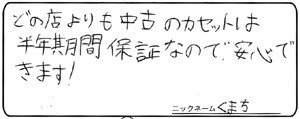 どの店よりも中古のカセットは
半年期間保証なので安心で
きます!
ニックネーム くまち